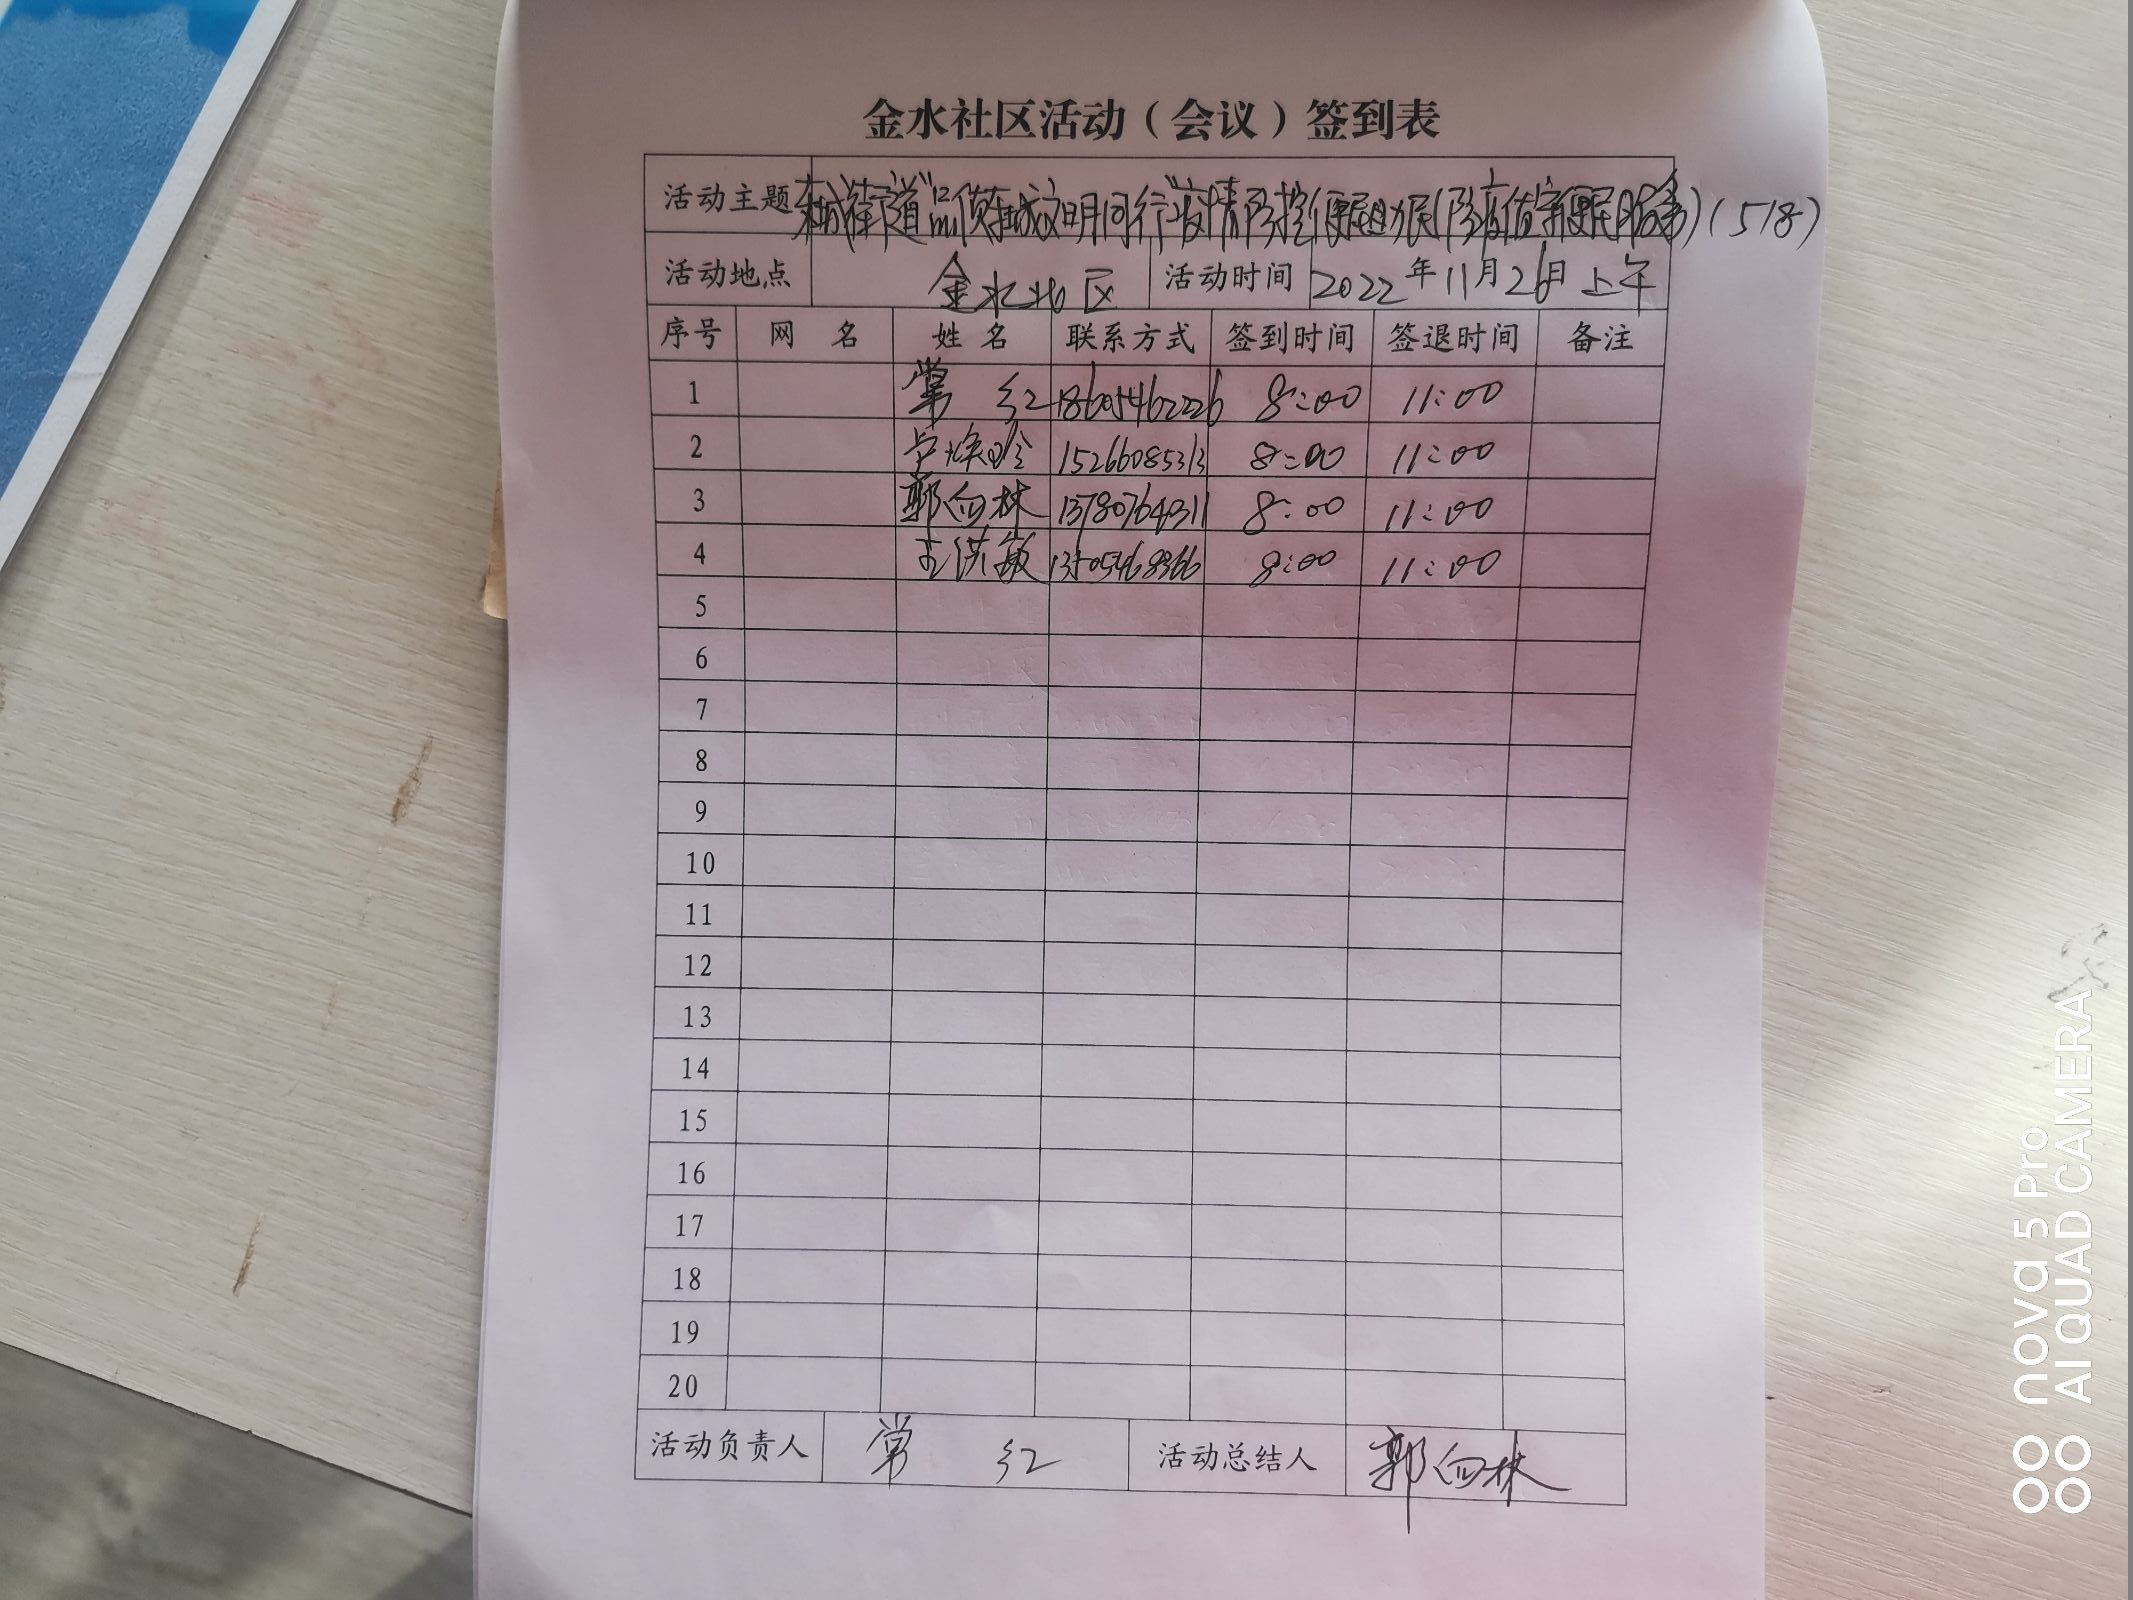 金水社区活动（会议）签到表
活动主题 东城街道"品质东城文明同行"疫情防控便民助民(防疫值守便民服务)(518)
活动地点 金水北区 活动时间 2022年11月26日上午
序号 网 名 姓 名 联系方式 签到时间 签退时间 备注
1 常 红 18605462226 8:00 11:00
2 卢焕玲 15266085313 8:00 11:00
3 郭向林 13780764311 8:00 11:00
4 王洪敏 13505468366 8:00 11:00
5
6
7
8
9
10
11
12
13
14
15
16
17
18
19
20
活动负责人 常 红 活动总结人 郭向林
nova 5 Pro
AI QUAD CAMERA